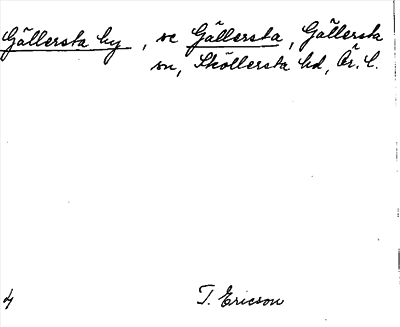 Gällersta by, se Gällersta, Gällersta
sn, Sköllersta hd, Ör. l.
4
T. Ericson